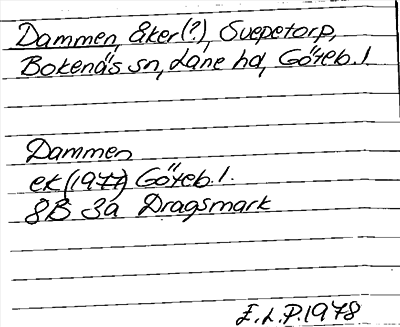 Dammen, åker(?), Suepetorp,
Bokenäs sn, Lane hd, Göteb. l.
Dammen
ek (1977) Göteb. l.
8B 3a Dragsmark
E.L.P. 1978